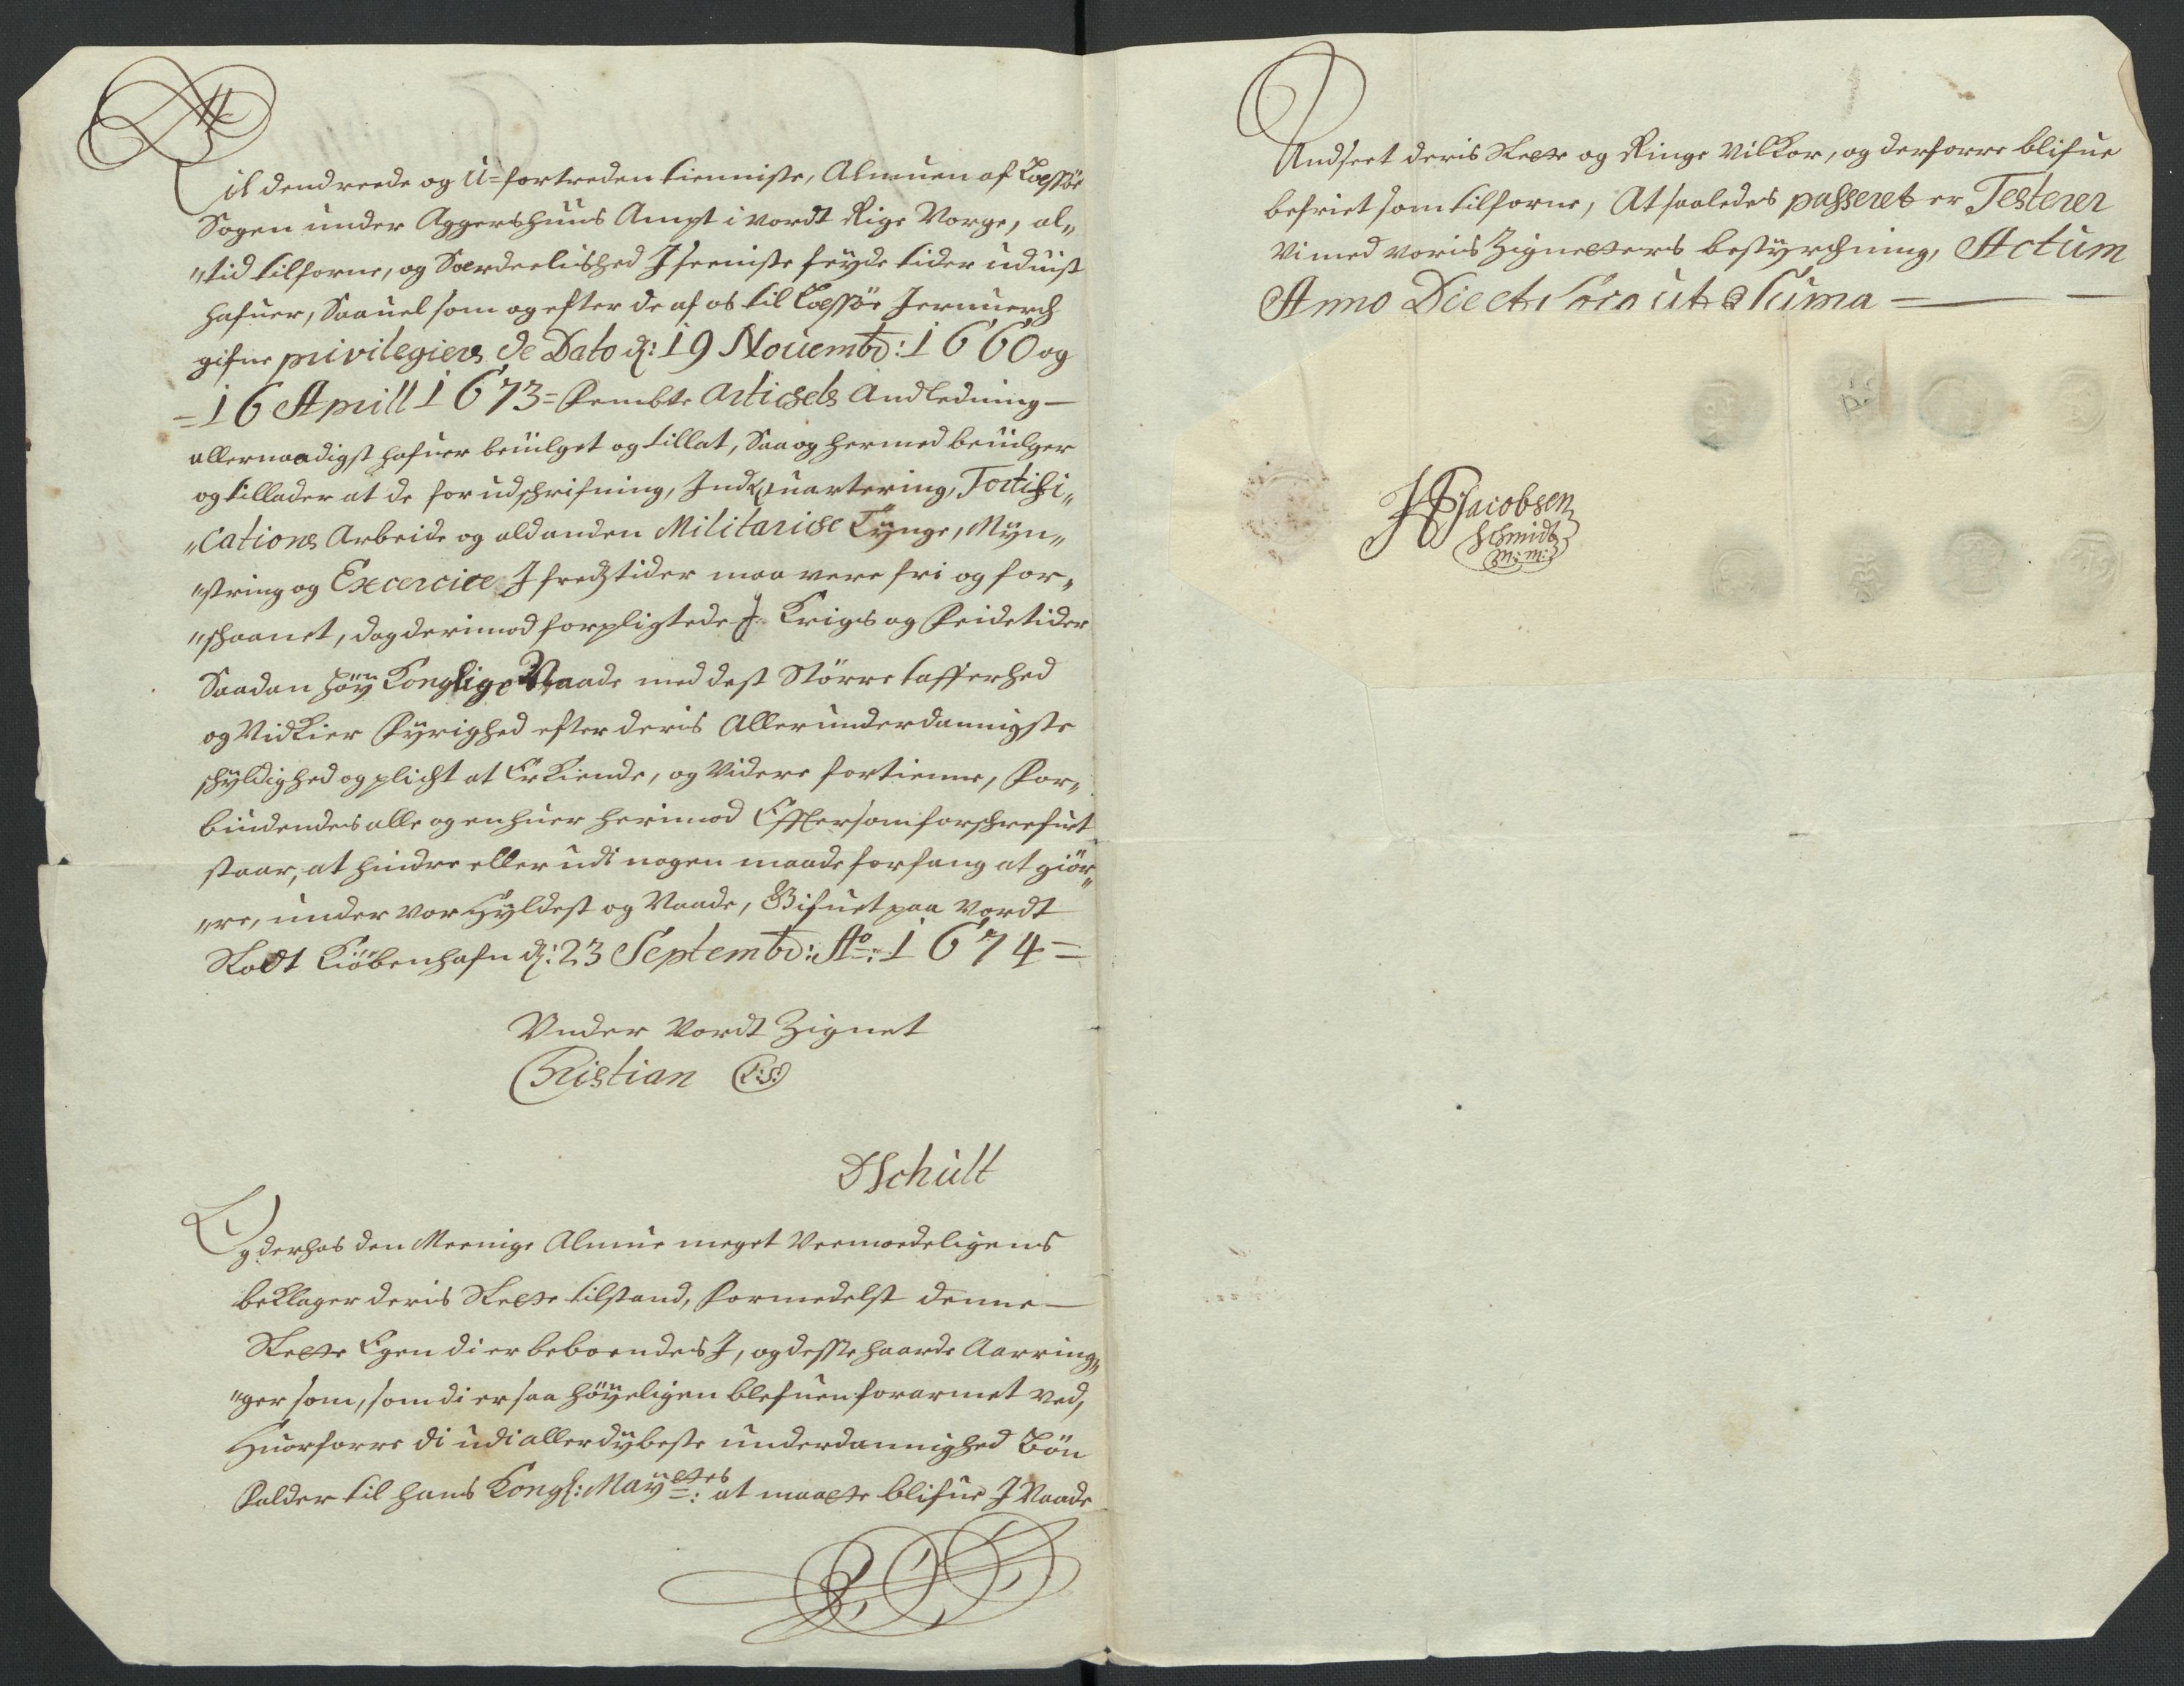 Til dend reede og U-fortreden tienniste, Almuen af Roessöe
Sogen under Aggershuus Ampt i vordt Rige Norge, al„
„tid tilforne, og Særdeelished I seeniste feyde tider uduist
hafuer, Saauel som og efter de af os til Roessöe Jernuerch
gifne privilegiers de Dato d: 19 Novembr: 1660 og
= 16 Aprill 1673 = Fembte Artichels Andledning —
allernaadigst hafuer beuilget og tillat, Saa og hermed beuilger
og tillader at de for udschrifning, Indquartering, Fortifi„
„cations Arbeide og ald anden Militarische Tynge, Myn„
„string og Excercice I fredstider maa vere fri og for„
„schaanet, dog derimod forpligtede I Krigs og Feide tider
Saadan höy Konglige Naade med dest Större tafferhed
og Nidkier Fyrighed efter deris Allerunderdannigste
schyldighed og plicht at Erkiende, og Videre fortienne, For„
biudendes alle og enhuer herimod Eftersom forschrefuet
staar, at hindre eller udi nogen maade forfang at giör„
„re, under vor Hyldest og Naade, Gifuet paa vordt
Slodt Kiöbenhafn d: 23 Septembr: Ao: 1674 =
Under vordt Zignet
Christian (L:S:)
DSchült
Og derhos den Meenige Almue meget Veemoedeligens
beklager deris Slette tilstand, Formedelst denne —
Slette Egen di er beboendes I, og desse haarde Aarring„
„ger som, som di er saa höyeligen blefuen forarmet ved,
Huorforre di udi allerdybeste underdannighed Bön
Falder til hans Kongl: Mayttes: at maatte blifue I Naade
Andseet deris Slette og Ringe Vilkor, og derforre blifue
befriet som tilforne, At saaledes passeret er Testerer
Vi med voris Zignetters bestyrchning, Actum
Anno Die et Loco ut Supra =
HPJacobsen
Schmidt
m: m: